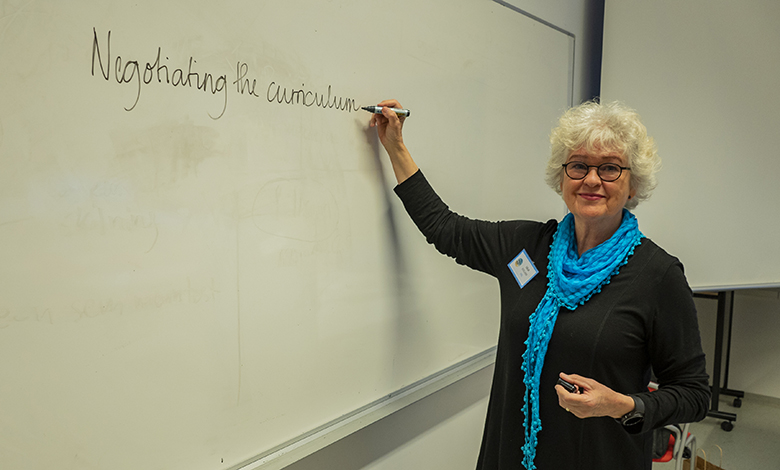 Negotiating the curriculum